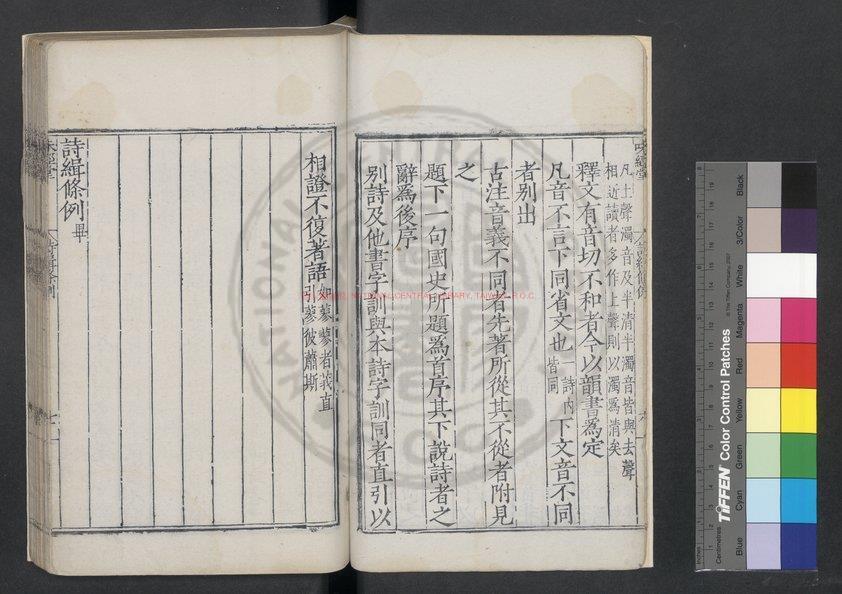 凡上聲濁音及半清半濁音皆與去聲
相近讀者多作上聲則以濁為清矣
釋文有音切不和者今以韻書為定
凡音不言下同省文也一詩内皆同下文音不同
者别出
古注音義不同者先著所從其不從者附見
之
題下一句國史所題為首序其下說詩者之
辭為後序
别詩及他書字訓與本詩字訓同者直引以
相證不復著語如蓼蓼者莪直引蓼彼蕭斯
詩緝條例畢
NATIONAL CENTRAL LIBRARY, TAIWAN, R.O.C.
TIFFEN Color Control Patches
© The Tiffen Company, 2007
Centimetres
Inches
Blue
Cyan
Green
Yellow
Red
Magenta
White
3/Color
Black